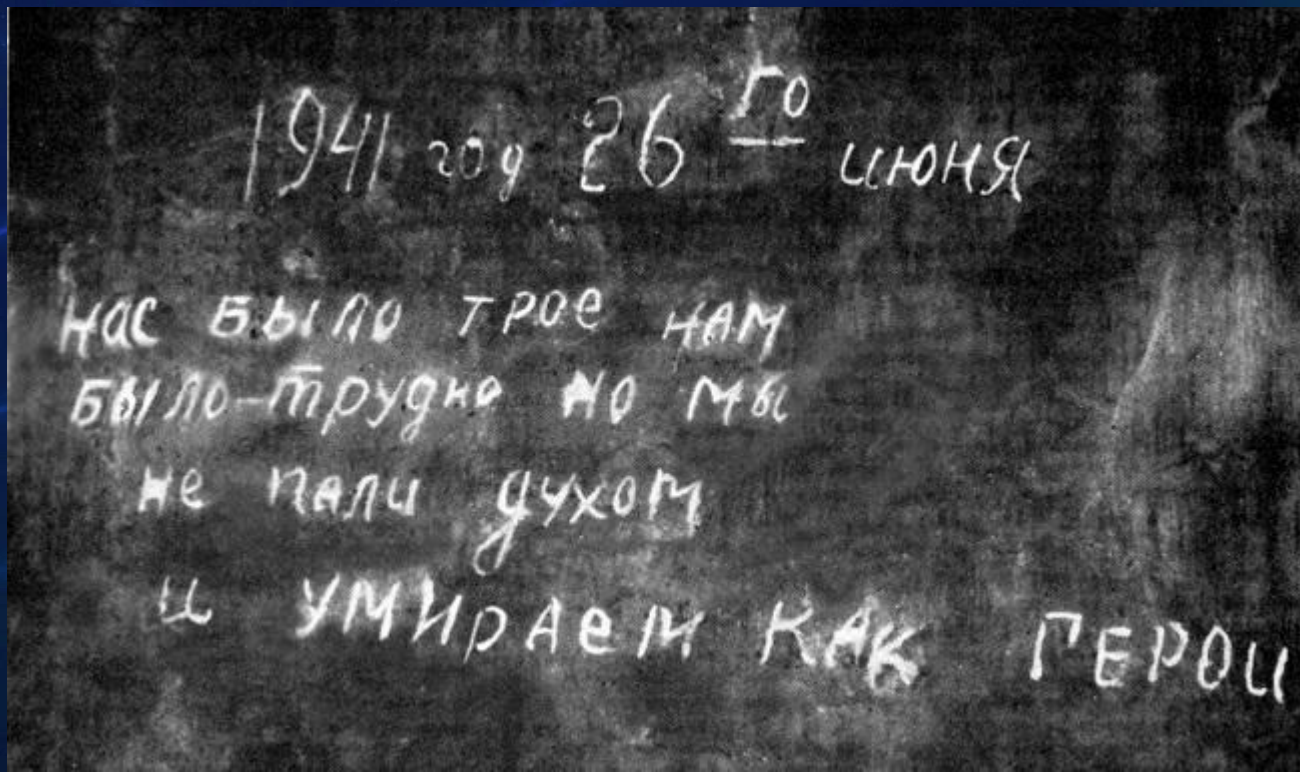 1941 год 26го июня
нас было трое нам
было-трудно но мы
не пали духом
и умираем как герои